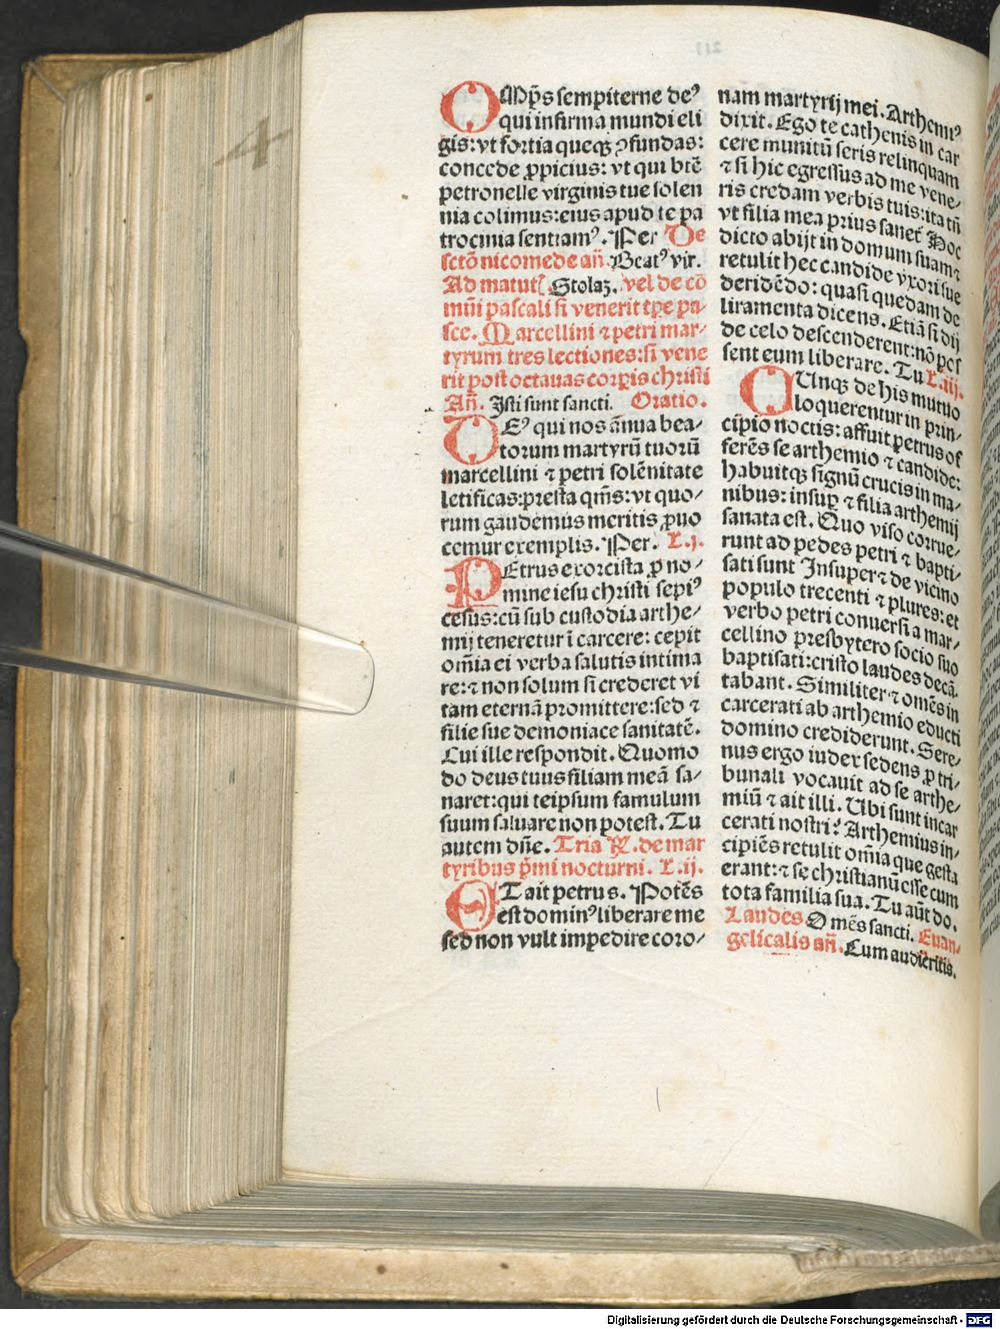 OMp̄s sempiterne deꝰ
qui infirma mundi eli
gis: vt fortia queqꝫ ꝯfundas:
concede ꝓpicius: vt qui btē
petronelle virginis tue solen
nia colimus: eius apud te pa
trocinia sentiamꝰ. Per De
sctō nicomede añ. Beatꝰ vir.
Ad matut Stolaꝫ. vel de cō
mūi pascali si venerit tp̄e pa-
sce. Marcellini ⁊ petri mar-
tyrum tres lectiones: si vene
rit post octauas corꝑis christi
Añ. Isti sunt sancti. Oratio.
DEꝰ qui nos ānua bea-
torum martyrū tuorū
marcellini ⁊ petri solēnitate
letificas: presta qm̄s: vt quo-
rum gaudemus meritis ꝓuo
cemur exemplis. Per. L.j.
PEtrus exorcista ꝓ no-
mine iesu christi sepiꝰ
cesus: cū sub custodia arthe-
mij teneretur ī carcere: cepit
om̄ia ei verba salutis intima
re: ⁊ non solum si crederet vi
tam eternā promittere: sed ⁊
filie sue demoniace sanitatē.
Cui ille respondit. Quomo
do deus tuus filiam meā sa-
naret: qui teipsum famulum
suum saluare non potest. Tu
autem dn̄e. Tria R̸. de mar
tyribus p̄mi nocturni. L.ij.
ET ait petrus. Potēs
est dominꝰ liberare me
sed non vult impedire coro-
nam martyrij mei. Arthemiꝰ
dixit. Ego te cathenis in car
cere munitū seris relinquam
⁊ si hic egressus ad me vene-
ris credam verbis tuis: ita tn̄
vt filia mea prius sanet᷑ Hoc
dicto abijt in domum suam ⁊
retulit hec candide vxori sue
deridēdo: quasi quedam de
liramenta dicens. Etiā si dij
de celo descenderent: nō pos
sent eum liberare. Tu L.iij.
CUnqꝫ de his mutuo
loquerentur in prin-
cipio noctis: affuit petrus of
ferēs se arthemio ⁊ candide:
habuitqꝫ signū crucis in ma-
nibus: insuꝑ ⁊ filia arthemij
sanata est. Quo viso corrue-
runt ad pedes petri ⁊ bapti-
sati sunt Insuper ⁊ de vicino
populo trecenti ⁊ plures: et
verbo petri conuersi a mar-
cellino presbytero socio suo
baptisati: cristo laudes decā.
tabant. Similiter ⁊ omēs in
carcerati ab arthemio educti
domino crediderunt. Sere-
nus ergo iudex sedens ꝓ tri-
bunali vocauit ad se arthe-
miū ⁊ ait illi. Ubi sunt incar
cerati nostri? Arthemius in-
cipiēs retulit om̄ia que gesta
erant: ⁊ se christianū esse cum
tota familia sua. Tu aūt do.
Laudes Omēs sancti. Euan-
gelicalis añ. Cum audieritis.
4
Digitalisierung gefördert durch die Deutsche Forschungsgemeinschaft - DFG